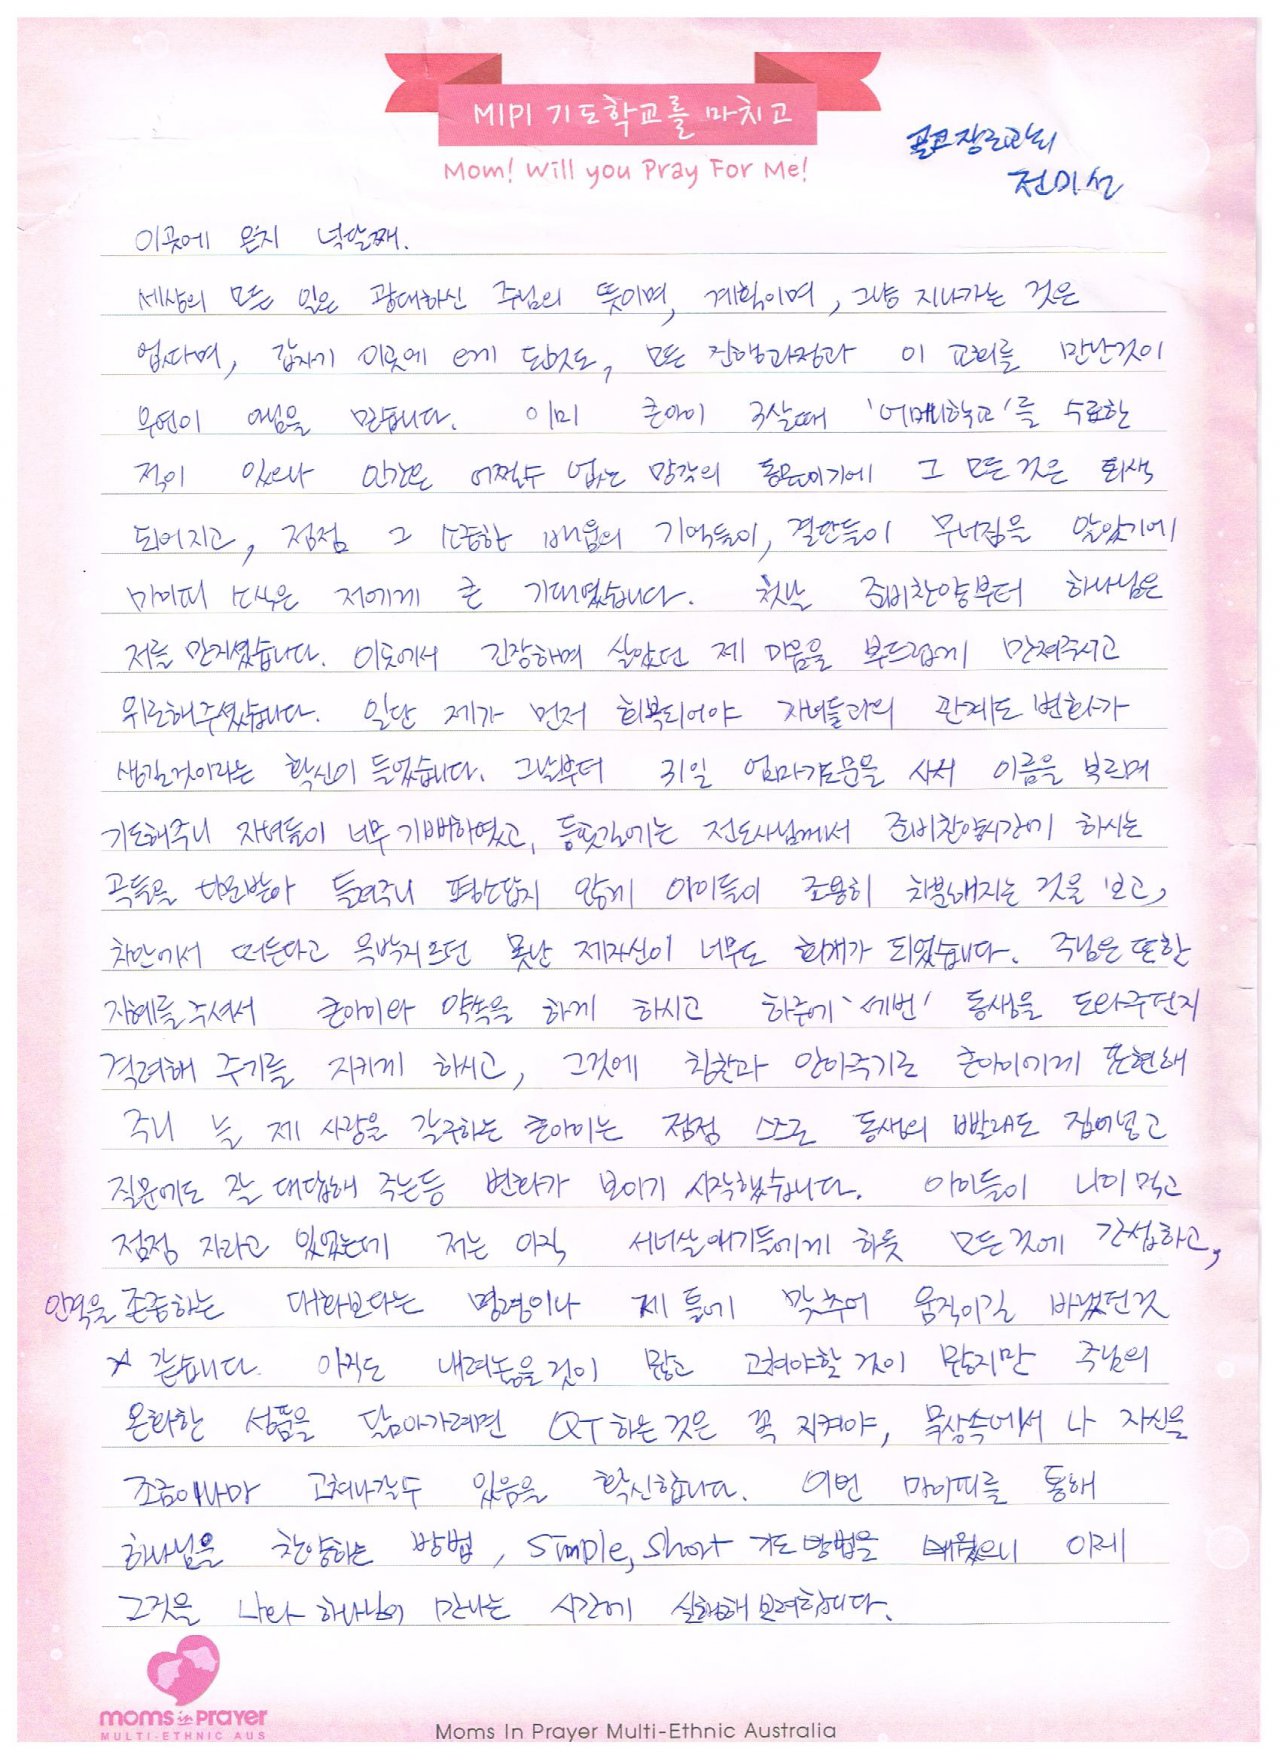 MIPI 기도학교를 마치고
Mom! Will you Pray For Me!
장로교회
전미선
이곳에 온지 넉달째.
세상의 모든 일은 광대하신 주님의 뜻이며, 계획이며, 그냥 지나가는 것은
없다며, 갑자기 이곳에 오게 된것도, 모든 진행과정과 이 교회를 만난것이
우연이 아님을 믿습니다. 이미 큰아이 3살때 '어머니학교'를 수료한
적이 있으나 인간은 어쩔수 없는 망각의 동물이기에 그 모든것은 퇴색
되어지고, 점점 그 소중한 배움의 기억들이, 결단들이 무너짐을 알았기에
마이피 소식은 저에게 큰 기대였습니다. 첫날 준비찬양부터 하나님은
저를 만지셨습니다. 이곳에서 긴장하며 살았던 제 마음을 부드럽게 만져주시고
위로해주셨습니다. 일단 제가 먼저 회복되어야 자녀들과의 관계도 변화가
생길것이라는 확신이 들었습니다. 그날부터 31일 엄마기도문을 사서 이름을 부르며
기도해주니 자녀들이 너무 기뻐하였고, 등굣길에는 전도사님께서 준비찬양시간에 하시는
곡들을 다운받아 들려주니 평소답지 않게 아이들이 조용히 차분해지는 것을 보고,
차안에서 떠든다고 윽박지르던 못난 제자신이 너무도 회개가 되었습니다. 주님은 또한
지혜를 주셔서 큰아이와 약속을 하게 하시고 하루에 '세번' 동생을 도와주던지
격려해 주기를 지키게 하시고, 그것에 칭찬과 안아주기로 큰아이에게 표현해
주니 늘 제 사랑을 갈구하는 큰아이는 점점 스스로 동생의 빨래도 집어넣고
질문에도 잘 대답해 주는등 변화가 보이기 시작했습니다. 아이들이 나이먹고
점점 자라고 있었는데 저는 아직 서너살 애기들에게 하듯 모든것에 간섭하고,
인격을 존중하는 대화보다는 명령이나 제 틀에 맞추어 움직이길 바랬던것
같습니다. 아직도 내려놓을것이 많고 고쳐야할 것이 많지만 주님의
온화한 성품을 닮아가려면 QT하는것은 꼭 지켜야, 묵상속에서 나 자신을
조금이나마 고쳐나갈수 있음을 확신합니다. 이번 마이피를 통해
하나님을 찬양하는 방법, simple, short 기도 방법을 배웠으니 이제
그것을 나와 하나님이 만나는 시간에 실행해보려합니다.
moms in PRAYER
MULTI-ETHNIC AUS
Moms In Prayer Multi-Ethnic Australia